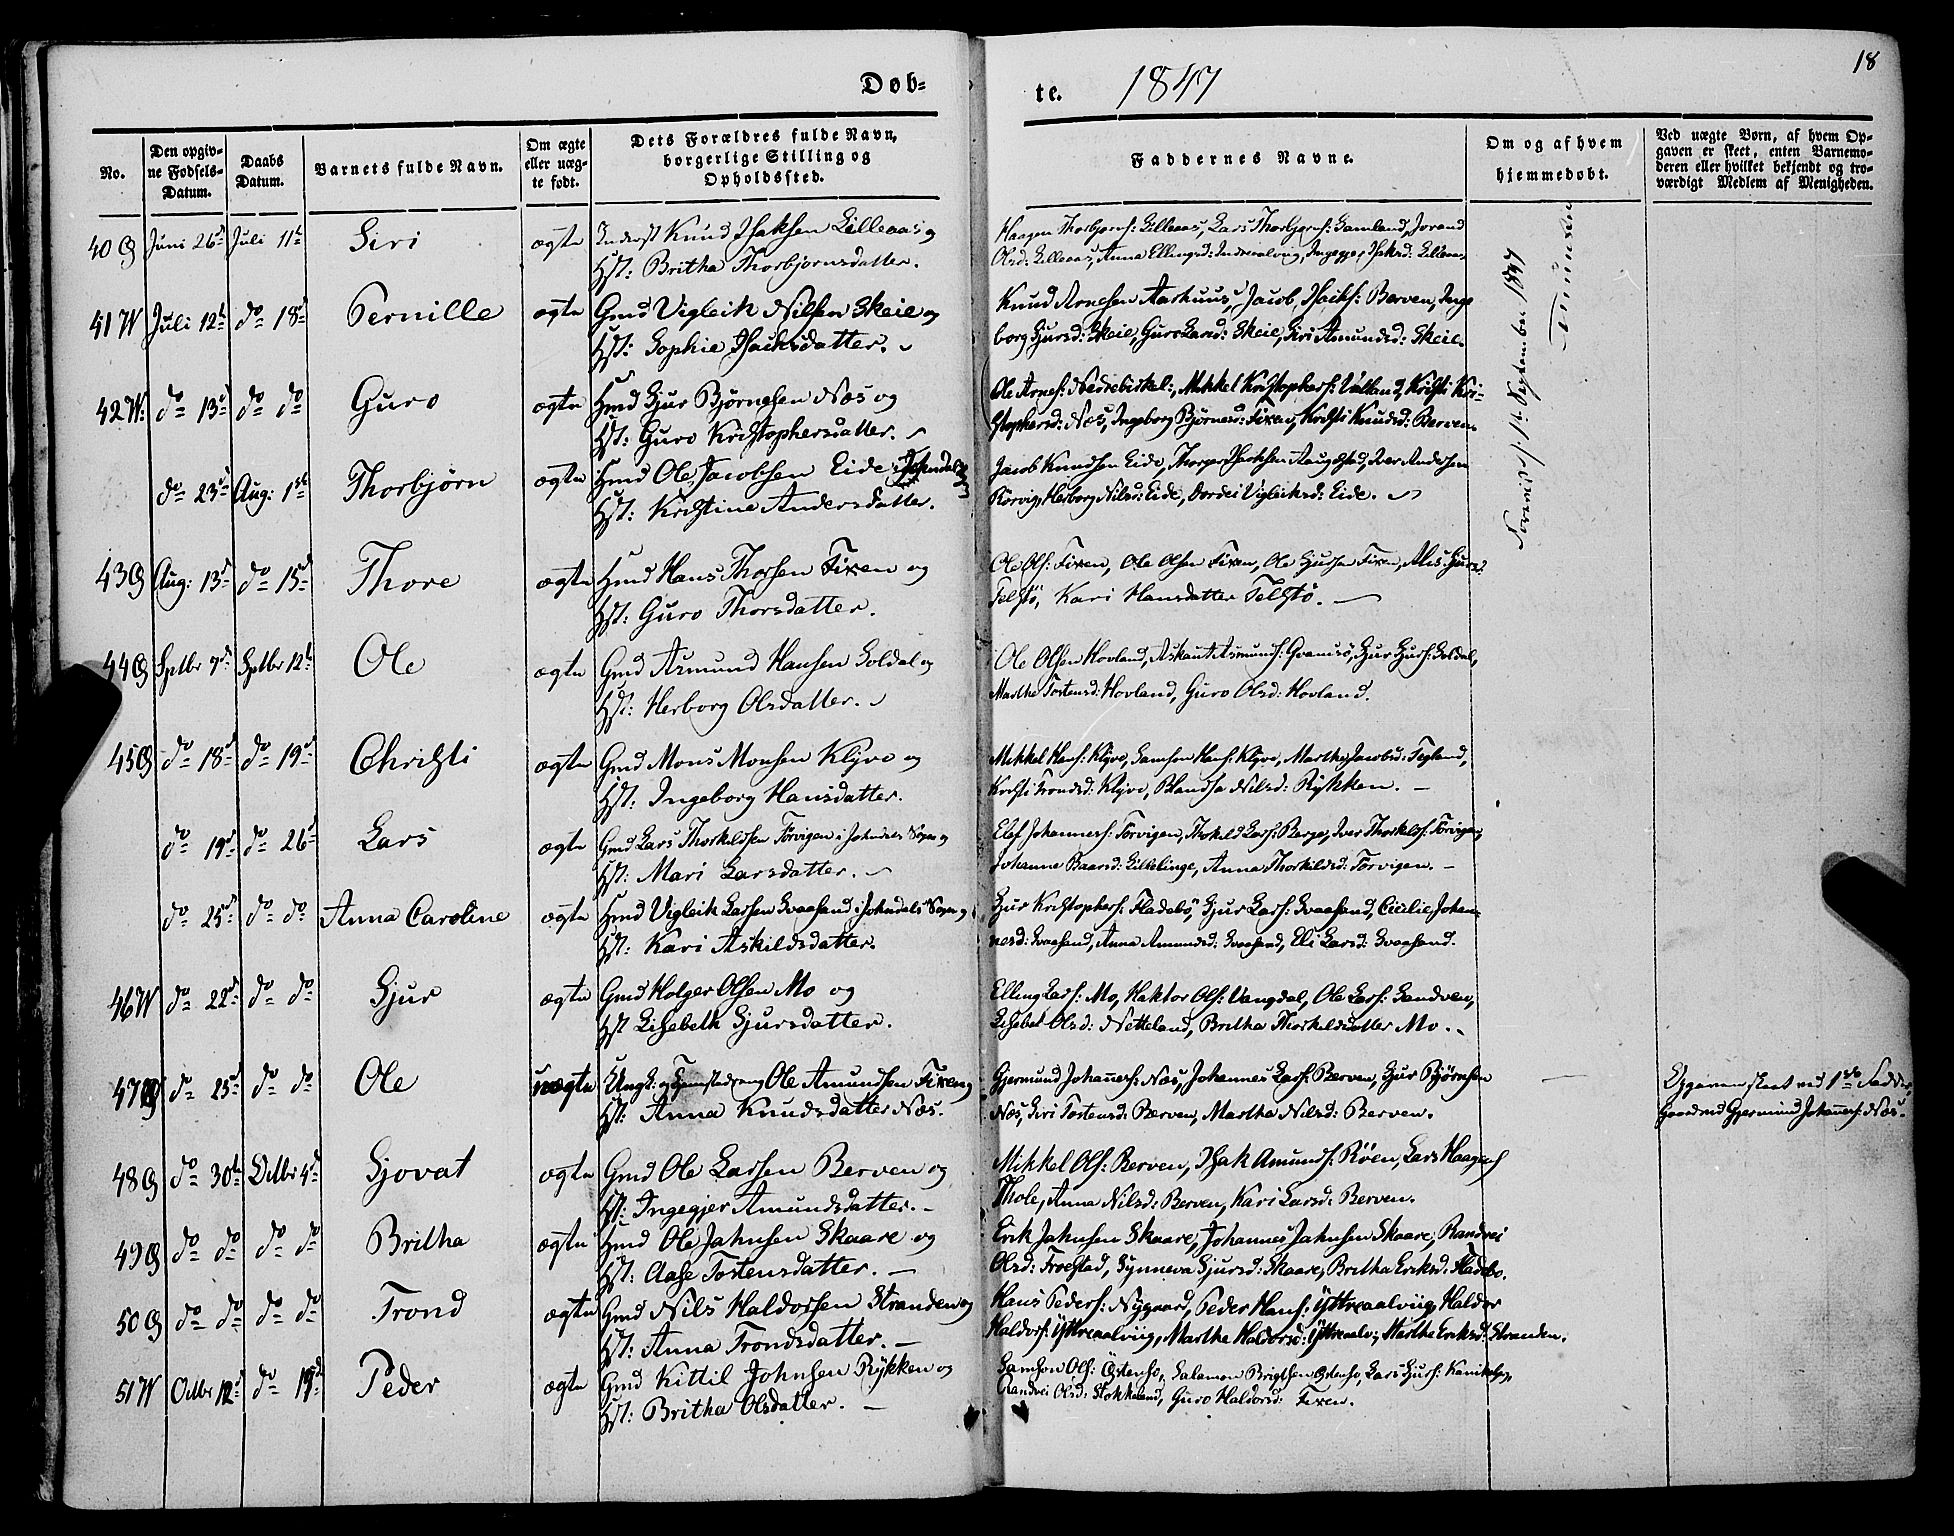 18
Døb-
te. 1847
No.
Den opgiv-
ne Fødsels-
Datum.
Daabs
Datum.
Barnets fulde Navn.
Om ægte
eller uæg-
te født.
Dets Forældres fulde Navn,
borgerlige Stilling og
Opholdssted.
Faddernes Navne.
Om og af hvem
hjemmedøbt.
Ved uægte Børn, af hvem Op-
gaven er skeet, enten Barnemo-
deren eller hvilket bekjendt og tro-
værdigt Medlem af Menigheden.
40 Juni 26 Juli 11 Siri ægte Inderst Knud Isaksen Lilleaas og
Hst: Britha Thorbjørnsdatter.
Haagen Thorbjørns: Lilleaas, Lars Thorbjørns: Samland, Jorand
Olsd: Lilleaas, Anna Ellingsd:
41 Juli 12 do 18 Pernille ægte Gmd Vigleik Nilsen Skeie og
Hst: Sophie Isaksdatter.
Knud Arnesen Aarhuus, Jacob Isaks: Berven, Inge
borg Sjursd: Skeie, Guro Larsd: Skeie, Siri Amundsd: Skeie.
42 do 13 do do Guro ægte Hmd Sjur Bjørnesen Næs og
Hst: Guro Kristophersdatter.
Ole Arnes: Nedrebirkel:, Mikkel Kristophers: Valland, Kristi Kri-
stophersd: Næs, Ingeborg Bjørnesd: Fixen, Kristi Knudsd: Berven.
do 23 Aug: 1 Thorbjørn ægte Hmd Ole Jacobsen Eide
Hst: Kristine Andersdatter.
Jacob Knudsen Eide, Iver Andersen
Herborg Nilsd: Eide, Vigleiksd: Eide.
43 Aug: 13 do 15 Thore ægte Hmd Hans Thorsen Fixen og
Hst: Guro Thorsdatter.
Ole Ols: Fixen, Ole Olsen Fixen, Ole Sjursen Fixen,
Telstø, Kari Hansdatter Telstø.
44 Septbr 7 Septbr 12 Ole ægte Gmd Asmund Hansen Soldal og
Hst: Herborg Olsdatter.
Ole Olsen Hovland, Sjur Sjurs: Soldal,
Martha Tostensd: Hovland, Guro Olsd: Hovland.
45 do 18 do 19 Christi ægte Gmd Mons Monsen Klyve og
Hst: Ingeborg Hansdatter.
Mikkel Hans: Klyve, Samson Hans: Klyve, Martha Jacobsd: Tegland,
Kristi Trondsd: Klyve, Nilsd: Rykken.
do 19 do 26 Lars ægte Gmd Lars Thorkildsen Torvigen i Jondals Sogn og
Hst: Mari Larsdatter.
Johannes: Torvigen, Thorkild Lars: Berge, Iver Thorkilds: Torvigen,
Johanna Baarsd: Anna Thorkildsd: Torvigen.
do 25 do do Anna Caroline ægte Hmd Vigleik Larsen Svaasand i Jondals Sogn og
Hst: Kari Askildsdatter.
Sjur Kristophers: Fladebø, Sjur Lars: Svaasand, Cicilie Johan-
nesd: Svaasand, Anna Amundsd: Svaasand, Eli Larsd: Svaasand.
46 do 22 do do Sjur ægte Gmd Holger Olsen Mo og
Hst Lisebeth Sjursdatter.
Elling Lars: Mo, Haktor Ols: Vangdal, Ole Lars: Sandven,
Lisebet Olsd: Netteland, Britha Thorkildsdatter Mo.
47 do 25 do do Ole uægte Ungk: og Ole Amundsen Fixen og
Hst: Anna Knudsdatter Næs.
Gjermund Johannes: Næs, Johannes Lars: Berven, Sjur Bjørnesen
Næs, Siri Tostensd: Berven, Martha Nilsd: Berven.
Opgaven skeet ved 1ste Fadder,
Gjermund Johannes: Næs.
48 do 30 Octbr 4 Sjovat ægte Gmd Ole Larsen Berven og
Hst: Ingegjer Amundsdatter.
Mikkel Ols: Berven, Isak Amunds: Røen, Lars Haagens:
Thole, Anna Nilsd: Berven, Kari Larsd: Berven.
49 do do do do Britha ægte Hmd Ole Jahnsen Skaare og
Hst: Aase Tostensdatter.
Erik Jahnsen Skaare, Johannes Jahnsen Skaare, Randvei
Olsd: Synneva Sjursd: Skaare, Britha Eriksd: Fladebø.
50 do do do do Trond ægte Gmd Nils Haldorsen Stranden og
Hst: Anna Trondsdatter.
Hans Peders: Nygaard, Peder Hans: Yttreaalviig, Haldor
Haldors: Yttreaalviig, Martha Haldorsd: Yttreaalv:, Martha Eriksd: Stranden.
51 Octbr 12 do 19 Peder ægte Gmd Kittil Johnsen Rykken og
Hst: Britha Olsdatter.
Samson Ols: Østensø, Salamon Brigtsen Østensø, Lars Sjurs:
Randvei Olsd: Stokkeland, Guro Haldorsd: Fixen.
September 1847